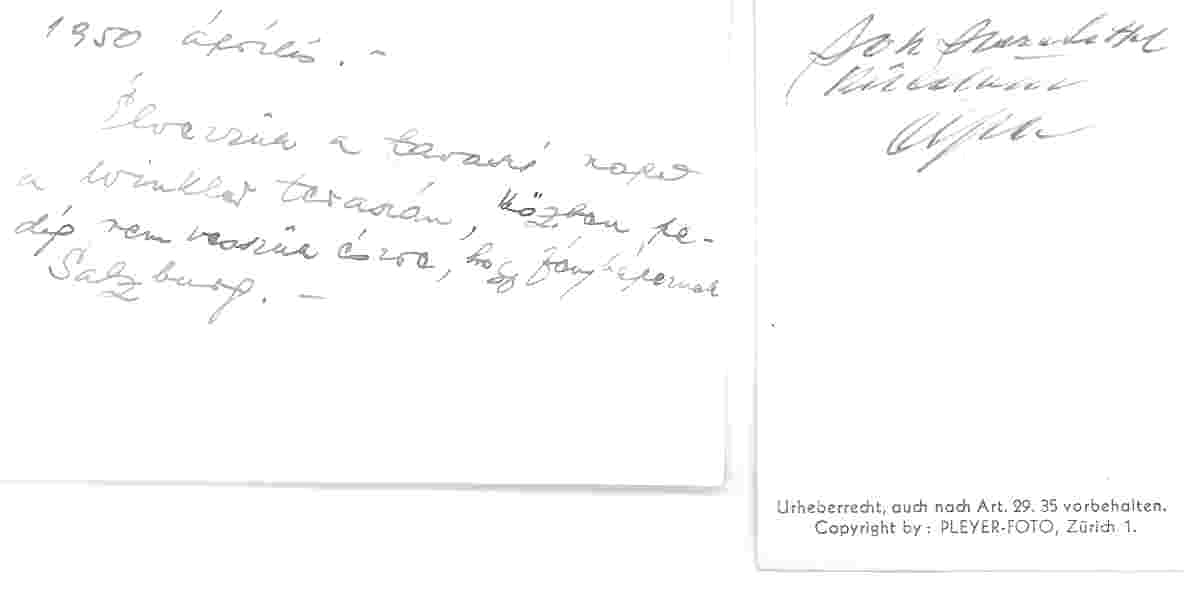 1950 április. –
Élvezzük a tavaszi napot
a Winkler teraszán, közben pe-
dig nem vesszük észre, hogy fényképeznek
Salzburg. –
Sok szeretettel
küldöm
Urheberrecht, auch nach Art. 29. 35 vorbehalten.
Copyright by: PLEYER-FOTO, Zürich 1.